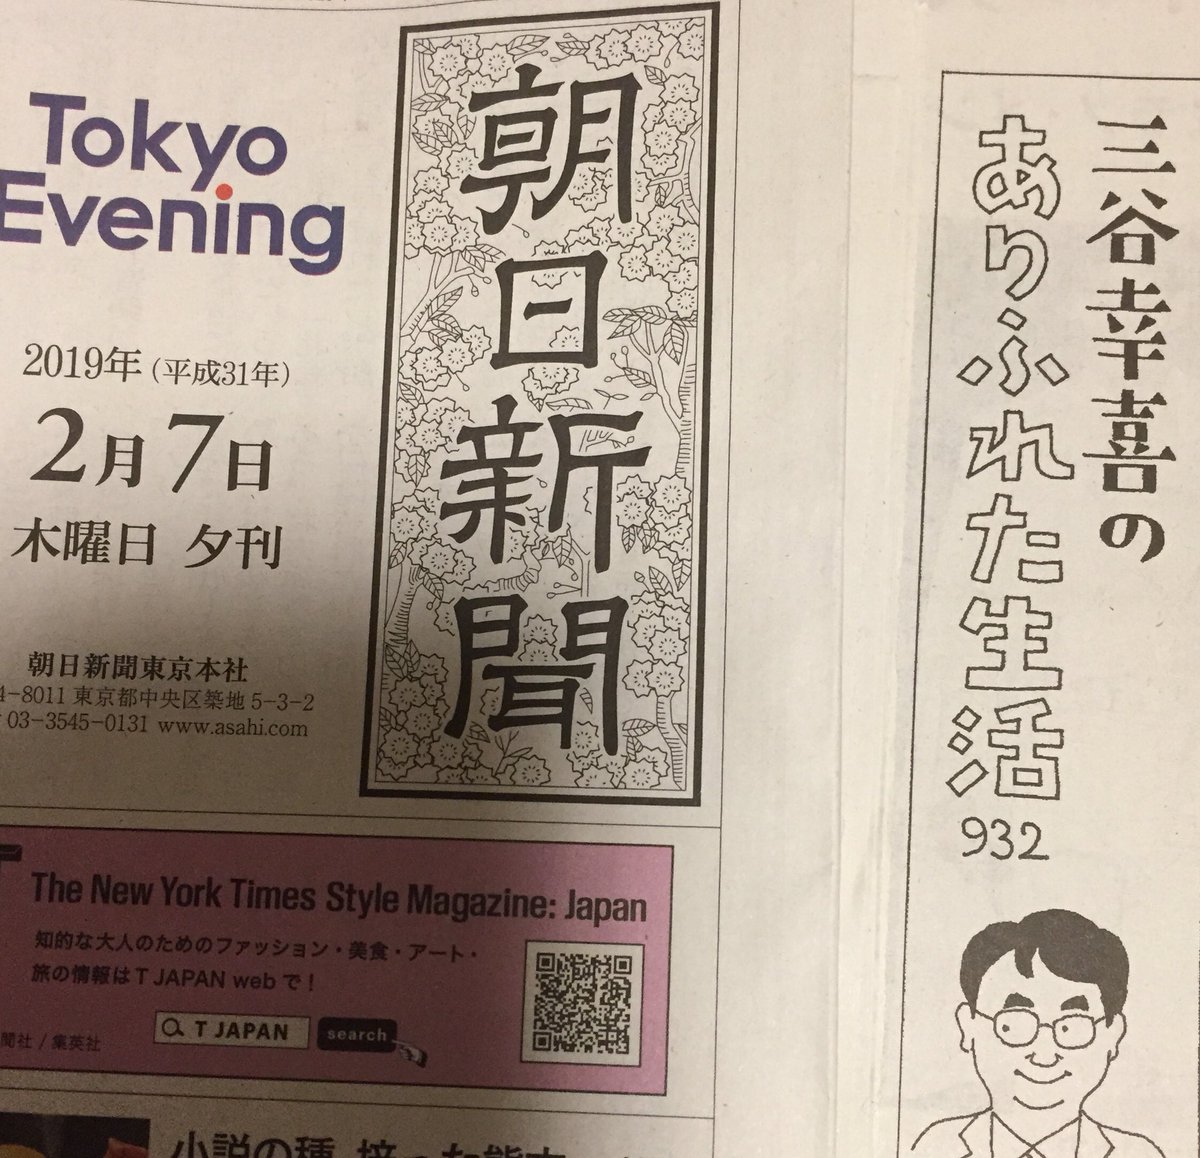 Tokyo
Evening
2019年(平成31年)
2月7日
木曜日 夕刊
朝日新聞東京本社
4-8011 東京都中央区築地5-3-2
03-3545-0131 www.asahi.com
朝日新聞
The New York Times Style Magazine: Japan
知的な大人のためのファッション・美食・アート・
旅の情報はT JAPAN webで!
T JAPAN search
聞社/集英社
小説の種
三谷幸喜の
ありふれた生活
932